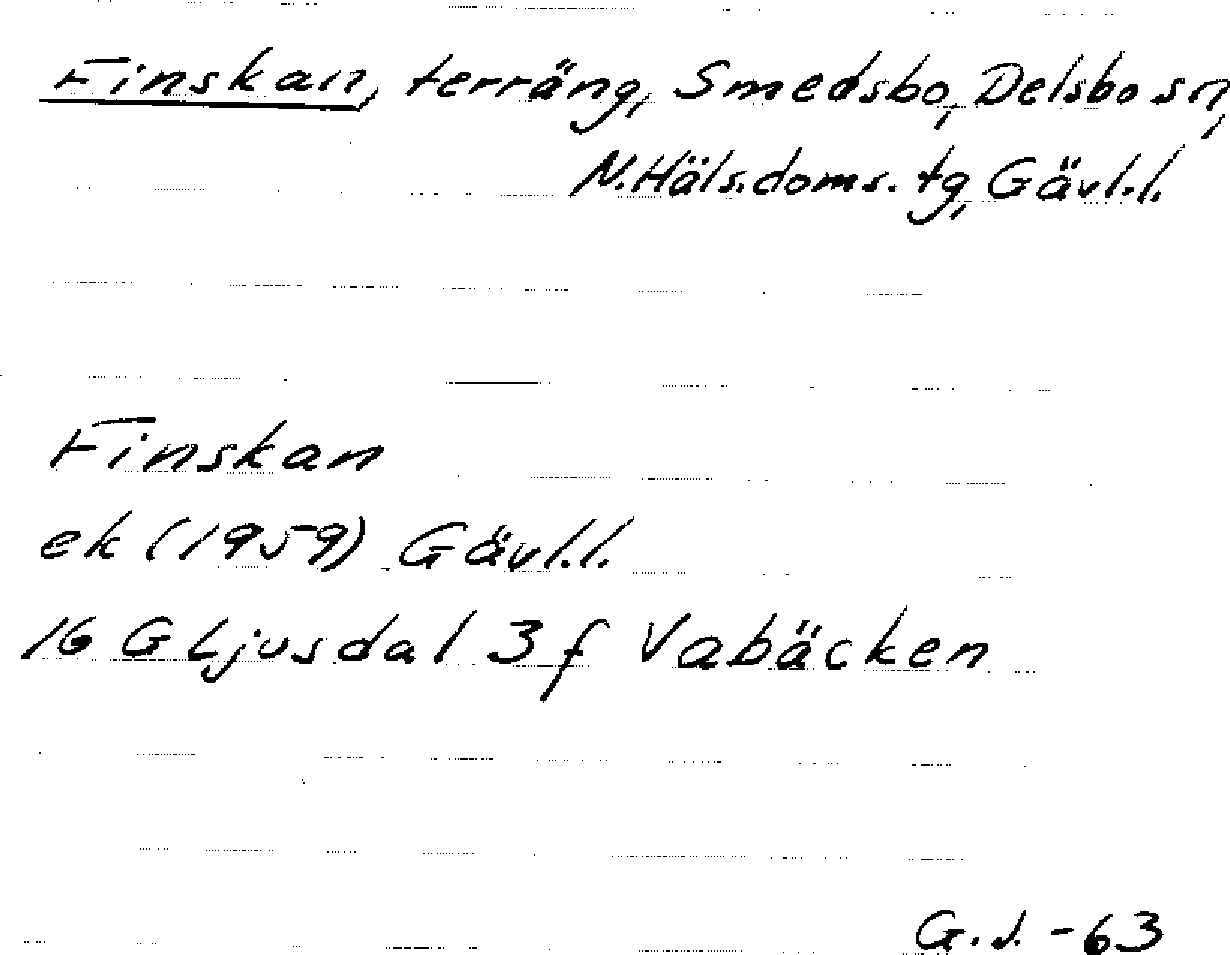 Finskan, terräng, Smedsbo, Delsbo sn,
N.Häls.doms.tg, Gävl.l.
Finskan
ek (1959) Gävl.l.
16 G Ljusdal 3 f Vabäcken
G.J. -63